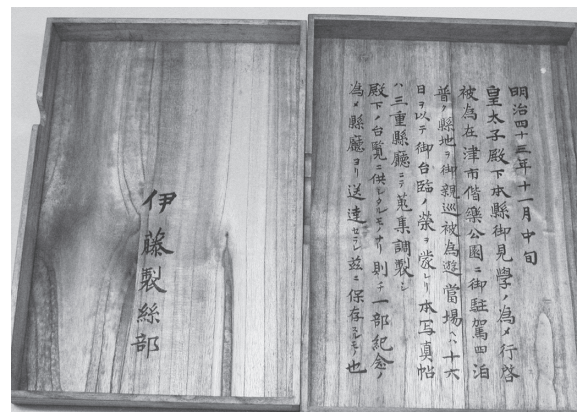 明治四十三年十一月中旬
皇太子殿下本縣御見學ノ為メ行啓
被為在津市偕樂公園ニ御駐駕四泊
普ク縣地ヲ御親巡被為遊當場ハ十六
日ヲ以テ御台臨ノ榮ヲ蒙レリ本写真帖
ハ三重縣廳ニテ蒐集調製シ
殿下ノ台覧ニ供シタルモノナリ則チ一部紀念ノ
為メ縣廳ヨリ送達セラレ茲ニ保存スルモノ也
伊藤製絲部